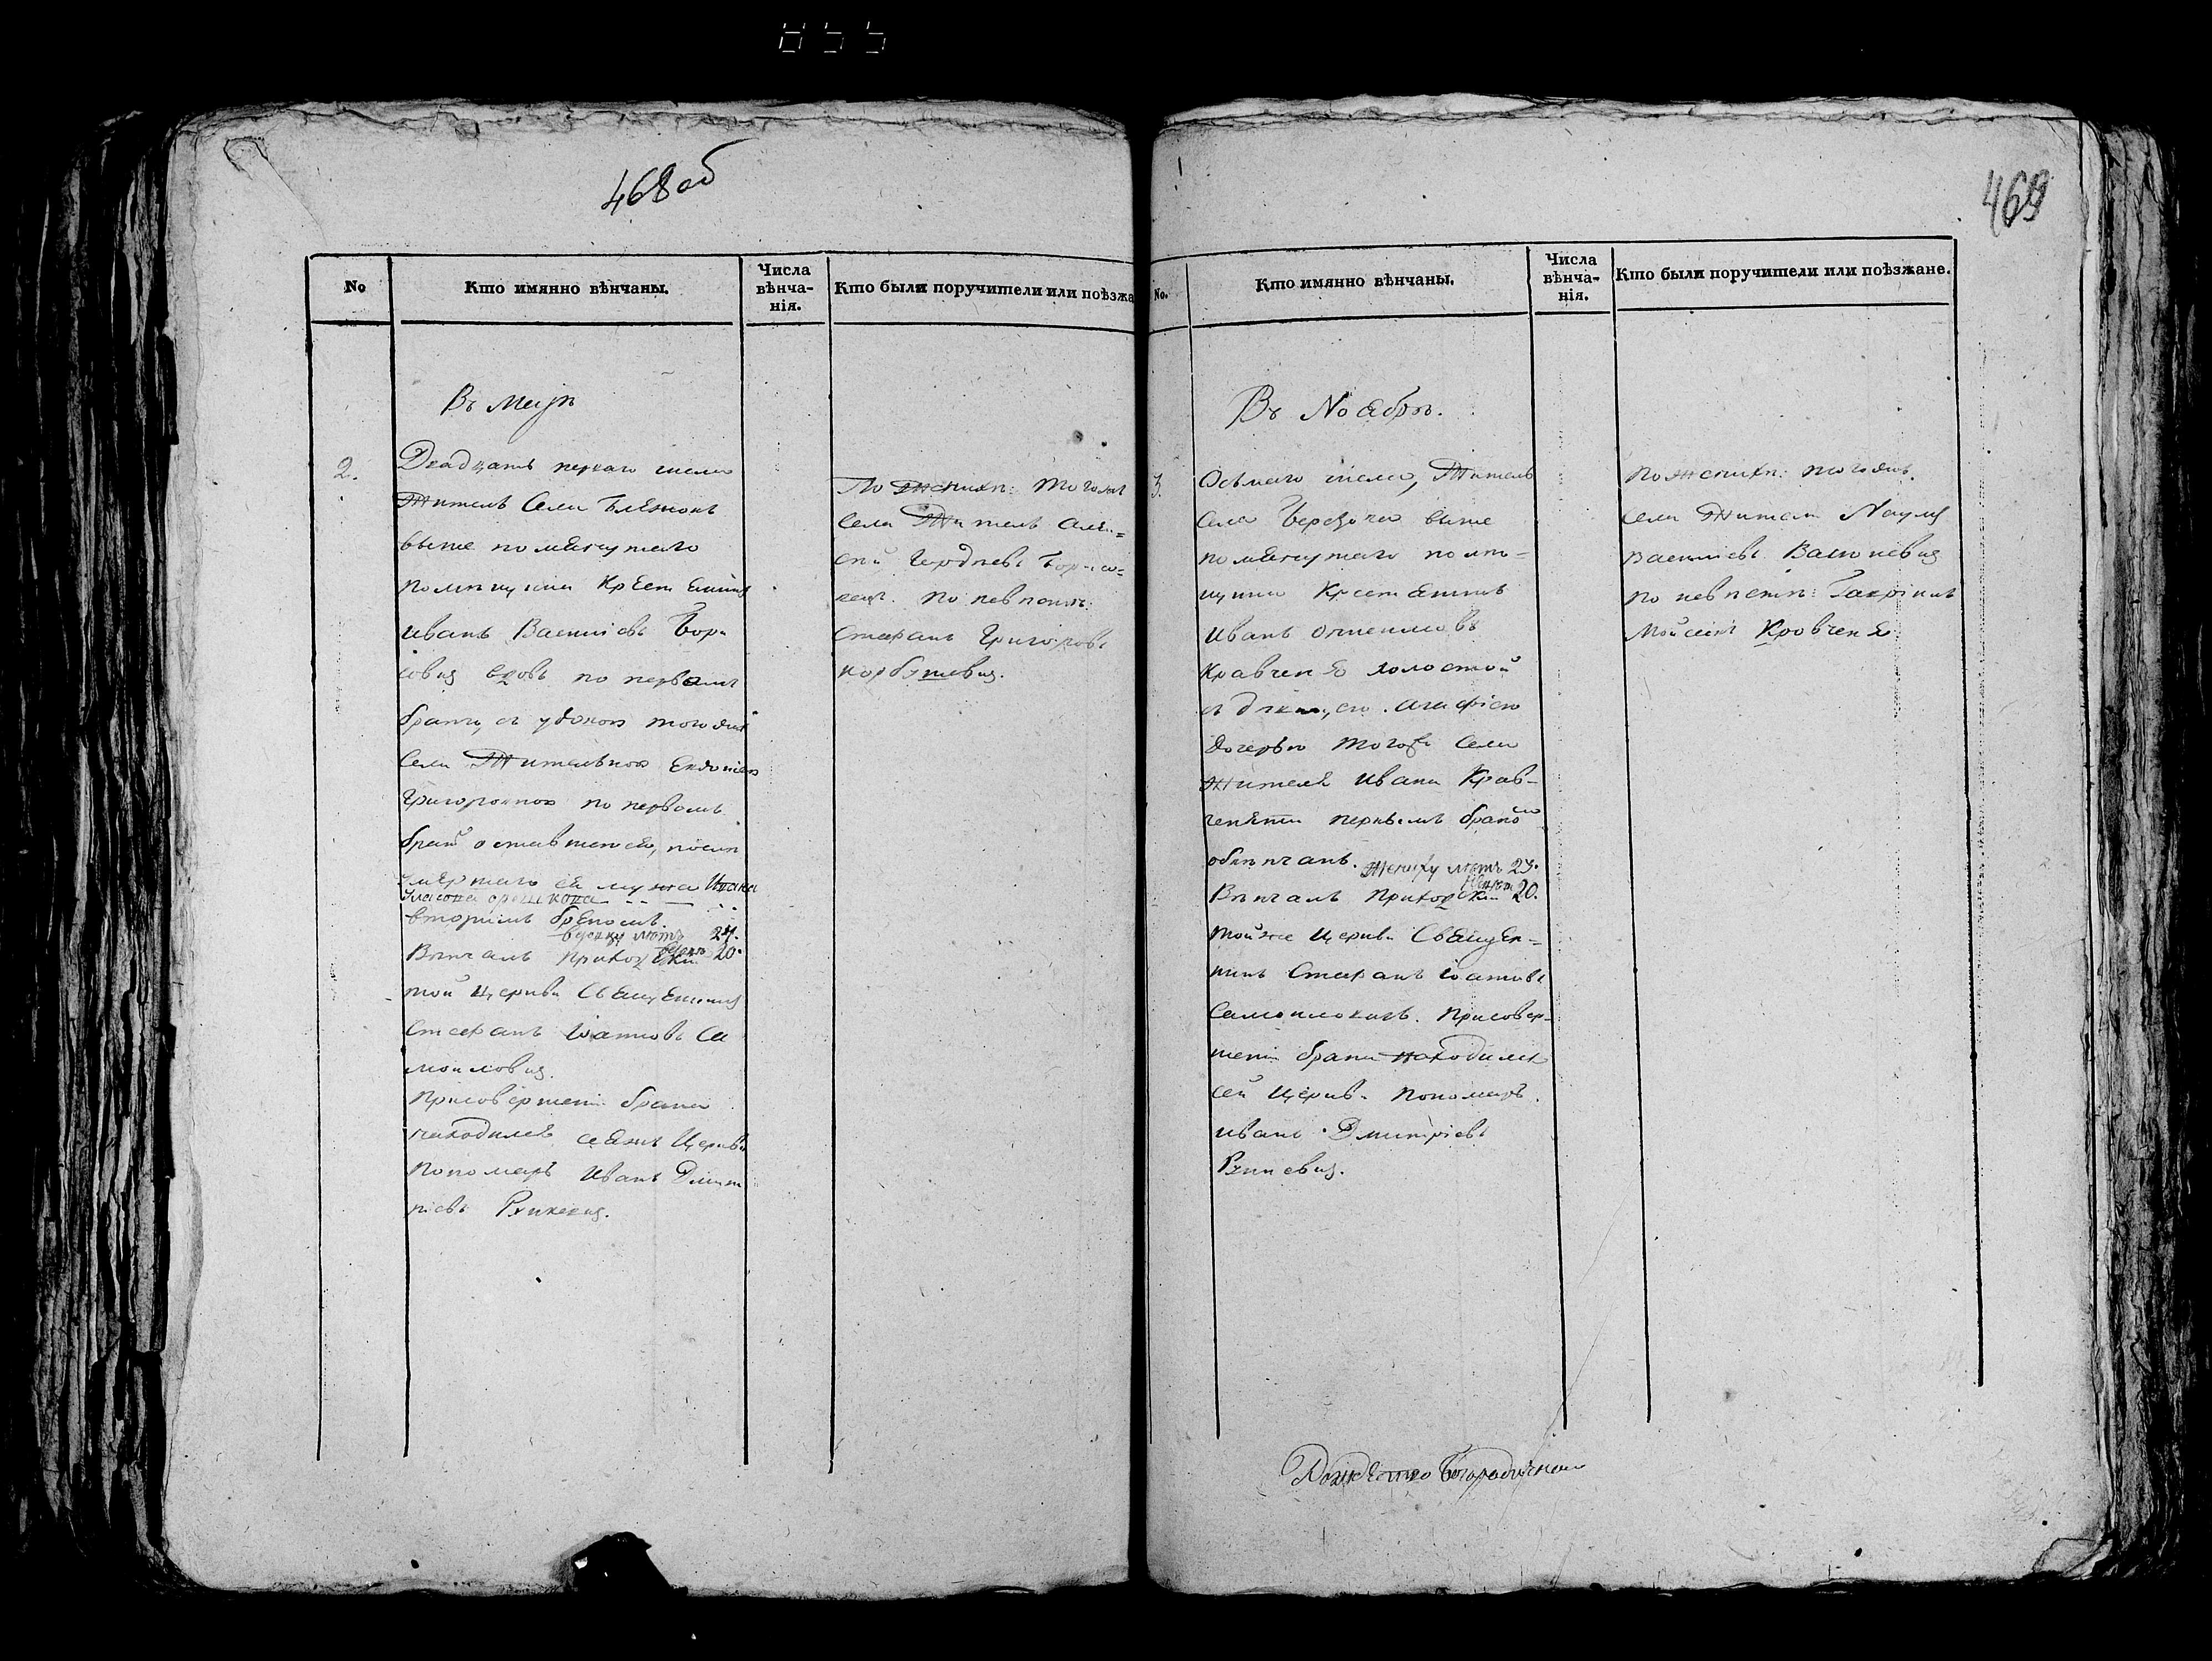 468 об
469
No
Кто имянно вѣнчаны.
Числа
вѣнча-
нія.
Кто были поручители или поѣзжа
Въ Маіѣ
2.
Двадцать перваго числа
Житель Села
выше помянутаго
помѣщика Крестянинъ
Иванъ Василіевъ Бори
совъ вдовъ по первомъ
браку, съ удовою тогожъ
Села Жителькою
Григоровною по первомъ
браку оставшеюся, послѣ
умершаго ея мужа Ивана
вторимъ бракомъ
вдовцу лѣтъ 24.
вдовѣ 20.
Вѣнчалъ Приходскій
той Церкви Священникъ
Стефанъ Іоанновъ Са
мойловичъ.
При совершеніи брака
находился сеяжъ Церкви
Пономаръ Иванъ Дмит
ріевъ
По женихѣ: тогожъ
Села Житель Алек=
сѣй Бори со=
вецъ. по невѣстѣ:
Стефанъ Григоровъ
No.
Кто имянно вѣнчаны.
Числа
вѣнча-
нія.
Кто были поручители или поѣзжане.
Въ Ноабрѣ.
3.
Осьмаго числа, Житель
Села выше
помянутаго помѣ-
щика Крестянинъ
Иванъ
Кравченя холостой
съ дѣвицею Агафіею
дочерью тогожъ Села
жителя Ивана Крав-
ченяти первымъ бракомъ
обвѣнчанъ. Жениху лѣтъ 23.
Невѣстѣ 20.
Вѣнчалъ Приходскій
тойже Церкви Священ=
никъ Стефанъ Іоанновъ
Самойловичъ. При совер-
шеніи брака находился
сей Церкви Пономаръ
Иванъ Дмитріевъ
По женихѣ: тогожъ
Села Житель Наумъ
Василіевъ
по невѣстѣ: Гавріилъ
Мойсѣевъ Кровченя.
Рождество Богородичной